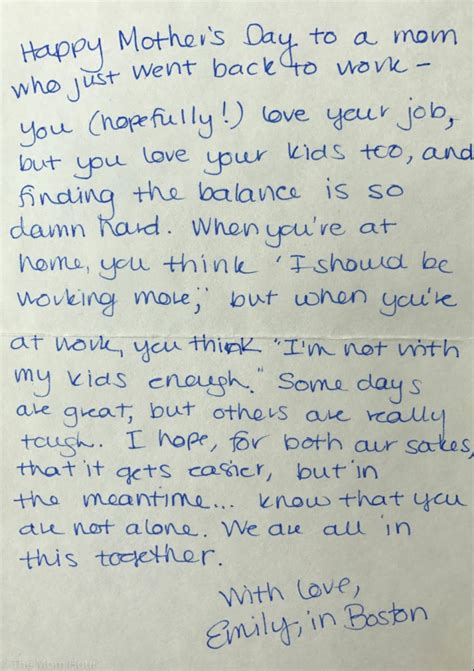 Happy Mother's Day to a mom
who just went back to work -
you (hopefully!) love your job,
but you love your kids too, and
finding the balance is so
damn hard. When you're at
home, you think 'I should be
working more,' but when you're
at work, you think "I'm not with
my kids enough." Some days
are great, but others are really
tough. I hope, for both our sakes,
that it gets easier, but in
the meantime... know that you
are not alone. We are all in
this together.
With love,
Emily, in Boston